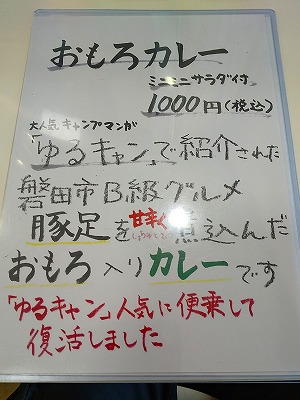 おもろカレー
ミニミニサラダ付
1000円(税込)
大人気キャンプマンガ
「ゆるキャン」で紹介された
磐田市B級グルメ
豚足を甘辛く煮込んだ
おもろ入りカレーです
「ゆるキャン」人気に便乗して
復活しました